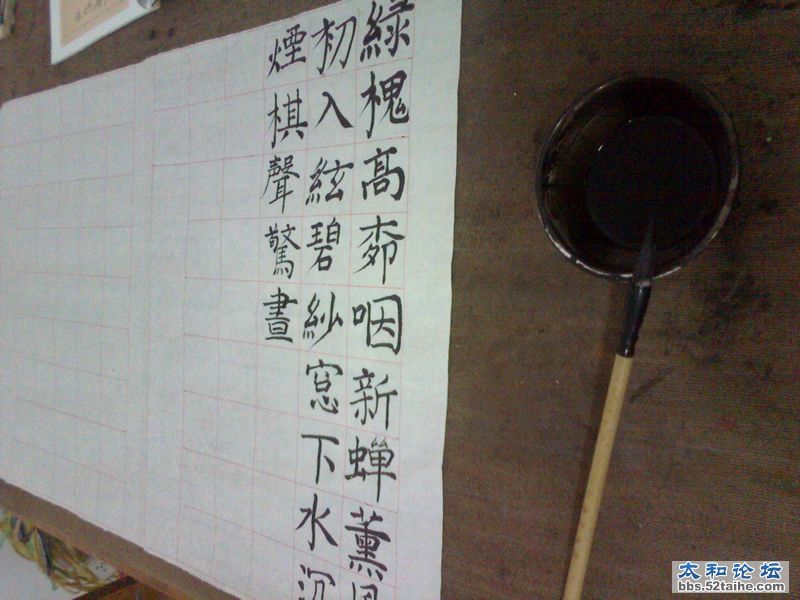 緑槐高柳咽新蝉薰風
初入絃碧紗窓下水沉
煙棋聲驚晝
太和论坛
bbs.52taihe.com